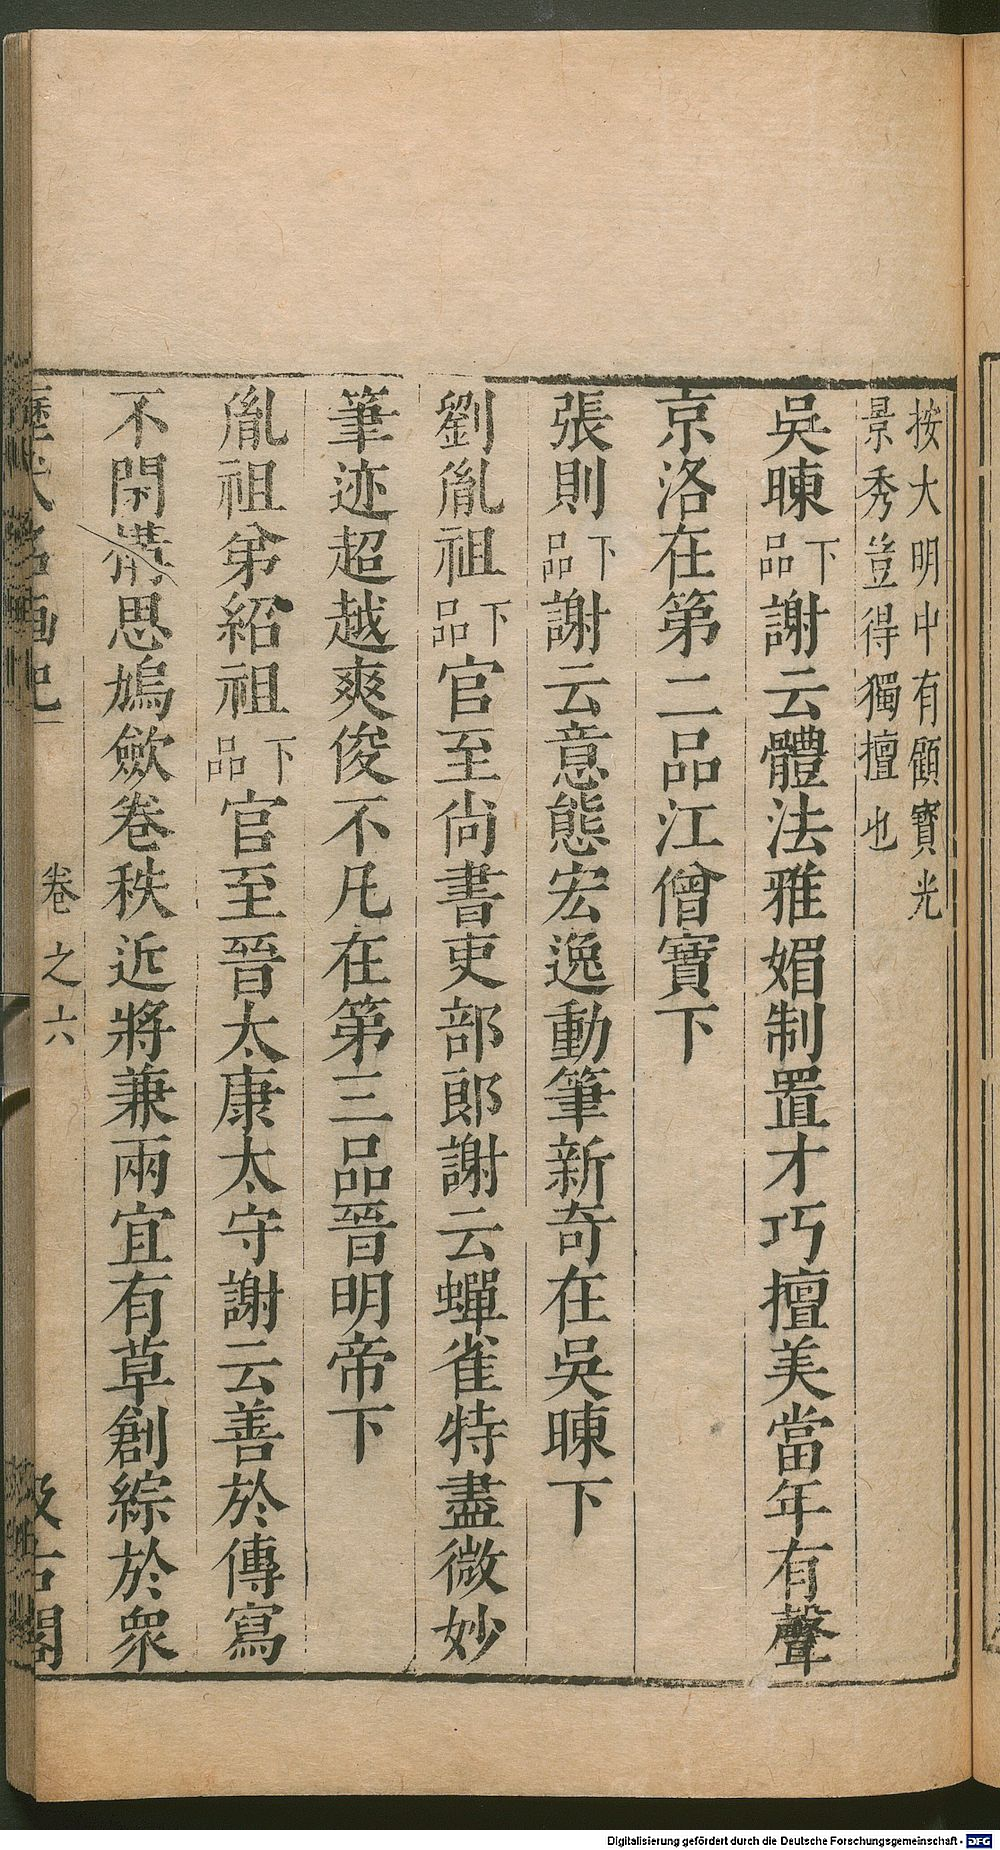 按大明中有顧寶光
景秀豈得獨擅也
吳暕下品謝云體法雅媚制置才巧擅美當年有聲
京洛在第二品江僧寶下
張則下品謝云意態宏逸動筆新奇在吳暕下
劉胤祖下品官至尙書吏部郞謝云蟬雀特盡微妙
筆迹超越爽俊不凡在第三品晉明帝下
胤祖弟紹祖下品官至晉太康太守謝云善於傳寫
不閑構思鳩斂卷秩近將兼兩宜有草創綜於衆
歷代名畫記
卷之六
汲古閣
Digitalisierung gefördert durch die Deutsche Forschungsgemeinschaft - DFG